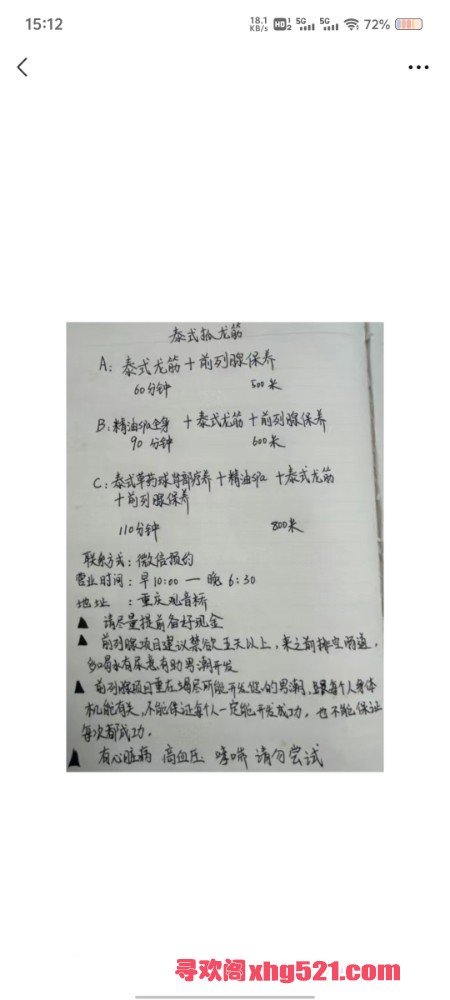 15:12
18.1 KB/s HD 1 2 5G 5G 72%
泰式抓龙筋
A：泰式龙筋＋前列腺保养
60分钟 500米
B：精油spa全身 ＋泰式龙筋＋前列腺保养
90分钟 600米
C：泰式草药球背部疗养＋精油spa ＋泰式龙筋
＋前列腺保养
110分钟 800米
联系方式：微信预约
营业时间：早10:00 — 晚6:30
地址 ：重庆观音桥
▲ 请尽量提前备好现金
▲ 前列腺项目建议禁欲五天以上，来之前排空肠道，
多喝水有尿意有助男潮开发
▲ 前列腺项目重在竭尽所能开发您的男潮，跟每个人身体
机能有关，不能保证每个人一定能开发成功，也不能保证
每次都成功．
▲ 有心脏病 高血压 哮喘 请勿尝试
寻欢阁xhg521.com